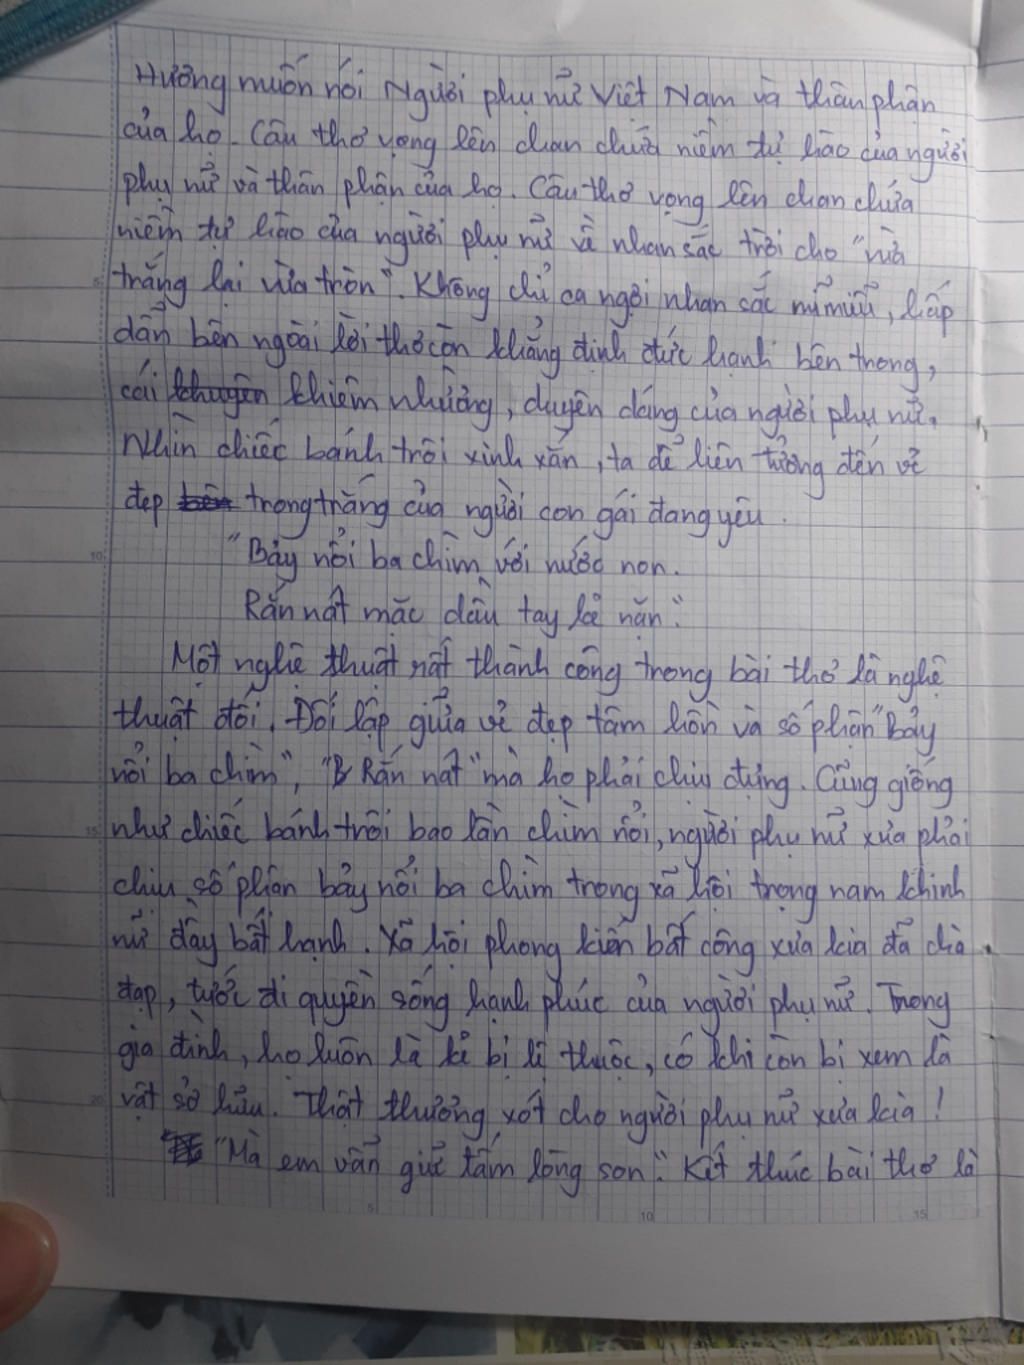 Hương muốn nói Người phụ nữ Việt Nam và thân phận
của họ. Câu thơ vọng lên chan chứa niềm tự hào của người
phụ nữ và thân phận của họ. Câu thơ vọng lên chan chứa
niềm tự hào của người phụ nữ về nhan sắc trời cho "vừa
trắng lại vừa tròn". Không chỉ ca ngợi nhan sắc mĩ miều, hấp
dẫn bên ngoài lời thơ còn khẳng định đức hạnh bên trong,
cái khuyên khiêm nhường, duyên dáng của người phụ nữ.
Nhìn chiếc bánh trôi xinh xắn, ta dễ liên tưởng đến vẻ
đẹp bên trong trắng của người con gái đang yêu.
"Bảy nổi ba chìm với nước non.
Rắn nát mặc dầu tay kẻ nặn."
Một nghệ thuật rất thành công trong bài thơ là nghệ
thuật đối. Đối lập giữa vẻ đẹp tâm hồn và số phận "Bảy
nổi ba chìm", "B Rắn nát" mà họ phải chịu đựng. Cũng giống
như chiếc bánh trôi bao lần chìm nổi, người phụ nữ xưa phải
chịu số phận bảy nổi ba chìm trong xã hội trọng nam khinh
nữ đầy bất hạnh. Xã hội phong kiến bất công xưa kia đã chà
đạp, tước đi quyền sống hạnh phúc của người phụ nữ. Trong
gia đình, họ luôn là kẻ bị lệ thuộc, có khi còn bị xem là
vật sở hữu. Thật thương xót cho người phụ nữ xưa kia!
"Mà em vẫn giữ tấm lòng son". Kết thúc bài thơ là
5 10 15